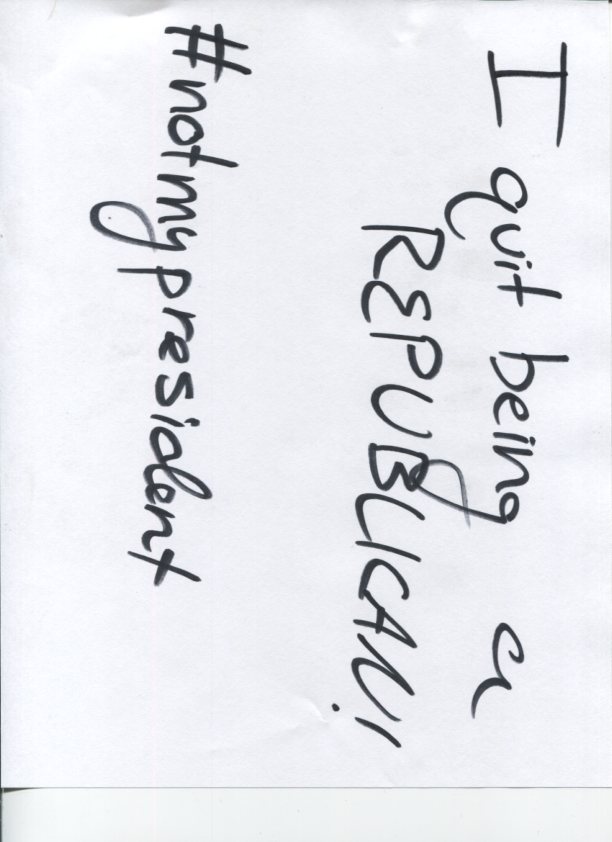 I quit being a
REPUBLICAN!
#notmypresident